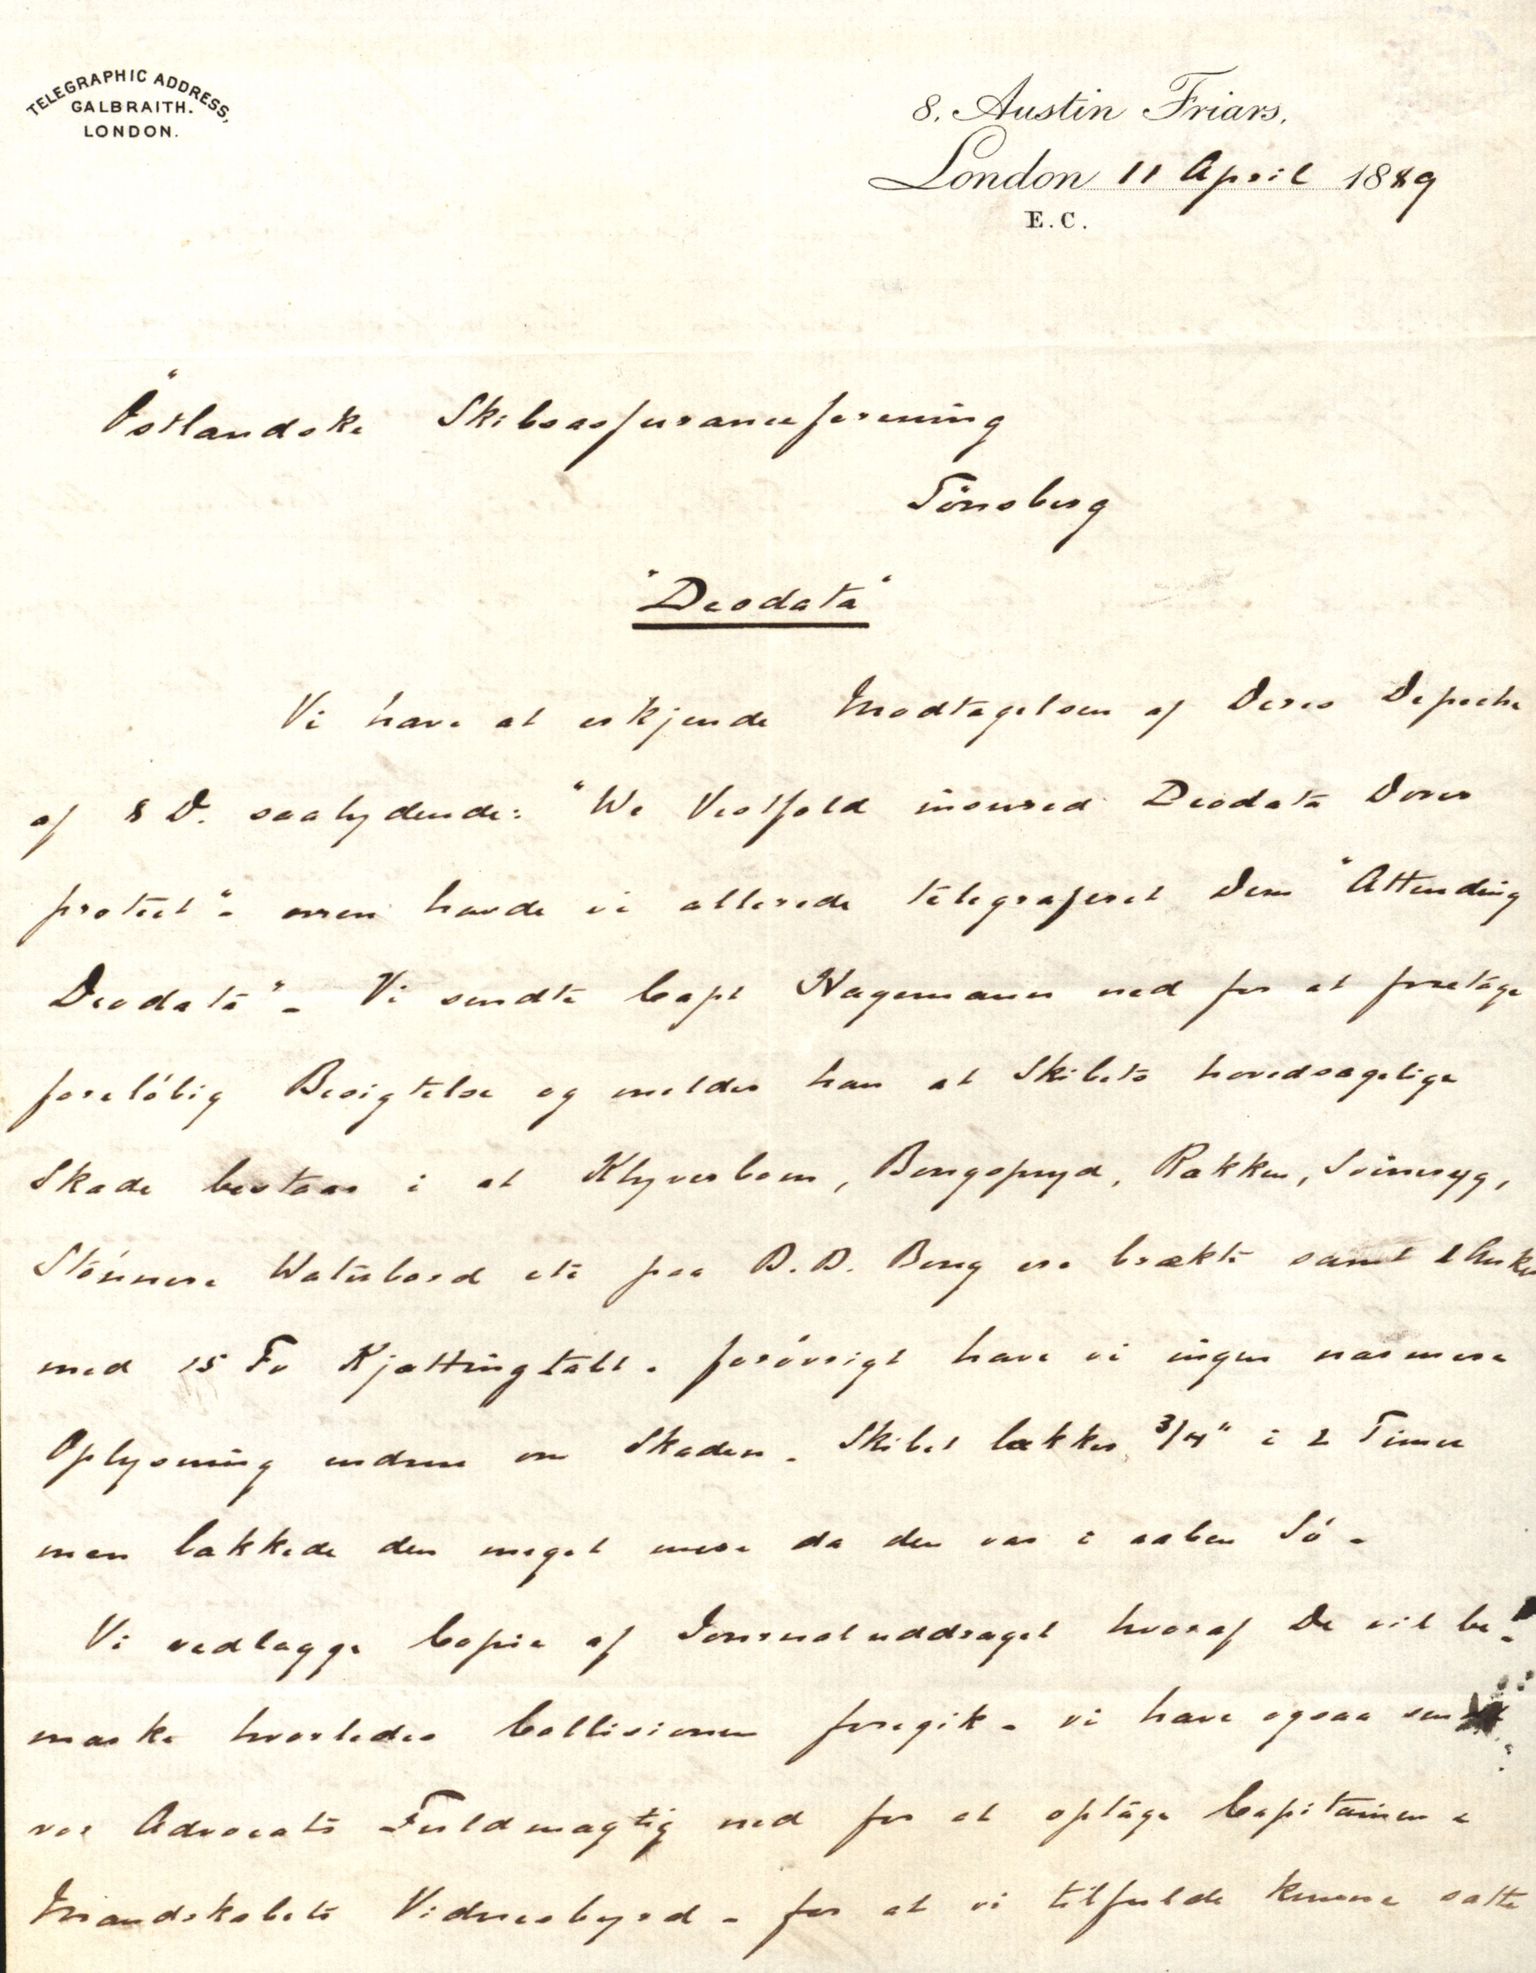 TELEGRAPHIC ADDRESS,
GALBRAITH.
LONDON.
8, Austin Friars,
London 11 April 1889
E.C.
Östlandske Skibsassuranceforening
Tönsberg
"Deodata"
Vi have at erkjende Modtagelsen af Deres Depeche
af 8 D. saalydende: "We Vestfold insured Deodata Dover
protect" - men havde vi allerede telegraferet Dem "Attending
Deodata" - Vi sendte Capt Hagemann ned for at foretage
foreløbig Besigtelse og melder han at Skibets hovedsagelige
Skade bestaar i at Klyverbom, Bougspryd, Rækken,
Stønnere Waterbord etc paa B.B. Boug ere brækte samt 1 Anker
med 15 Fv Kjættingtabt. forøvrigt have vi ingen nærmere
Oplysning endnu om Skaden. Skibet lækker 3/4" i 2 Timer
men lækkede den meget mere da den var i aaben Sø -
Vi vedlægge Copie af Journaluddraget hvoraf De vil be-
mærke hvorledes Collisionen foregik - vi have ogsaa sendt
vor Advocats Fuldmægtig ned for at optage Capitainen &
Mandskabets Vidnesbyrd - for at vi tilfulde kunne sætte